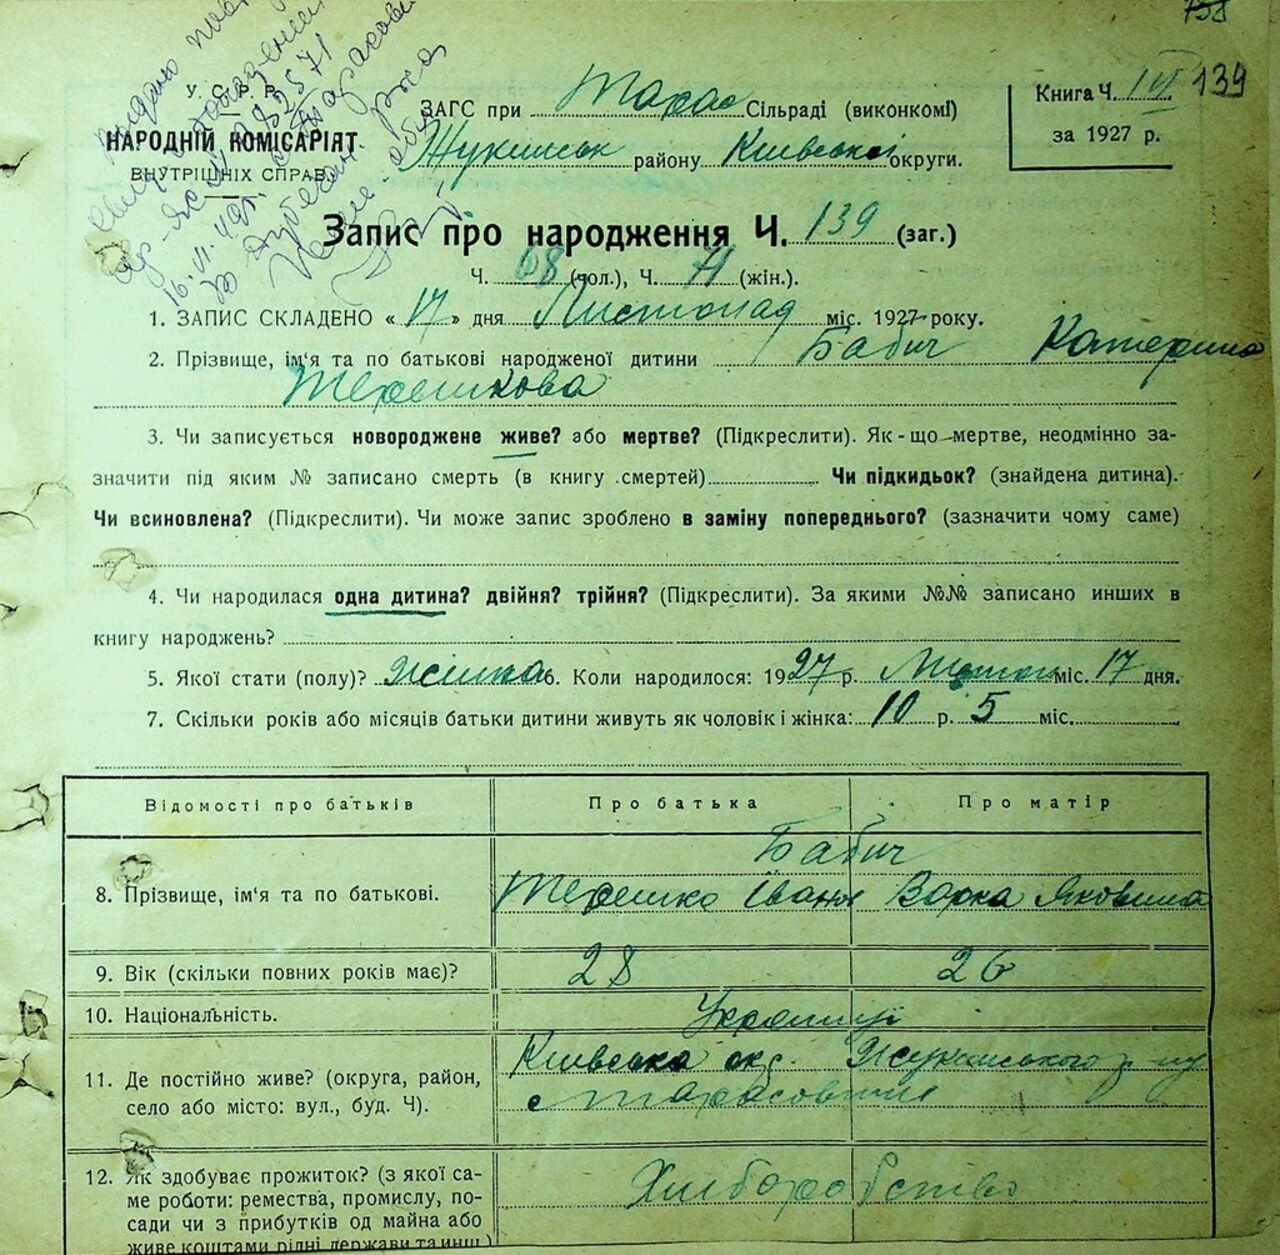 138
У. С. Р. Р.
НАРОДНІЙ КОМІСАРІЯТ
ВНУТРІШНІХ СПРАВ
ЗАГС при Тарас Сільраді (виконкомі)
Жукинськ району Київської округи.
Книга Ч. IVІ 139
за 1927 р.
Запис про народження Ч. 139 (заг.)
Ч. 68 (чол.), Ч. 71 (жін.).
1. ЗАПИС СКЛАДЕНО « 17 » дня Листопад міс. 1927 року.
2. Прізвище, ім'я та по батькові народженої дитини Бабич Катерина
Терешкова
3. Чи записується новороджене живе? або мертве? (Підкреслити). Як-що мертве, неодмінно за-
значити під яким № записано смерть (в книгу смертей) Чи підкидьок? (знайдена дитина).
Чи всиновлена? (Підкреслити). Чи може запис зроблено в заміну попереднього? (зазначити чому саме)
4. Чи народилася одна дитина? двійня? трійня? (Підкреслити). За якими №№ записано инших в
книгу народжень?
5. Якої стати (полу)? Жіноча 6. Коли народилося: 1927 р. Листопад міс. 17 дня.
7. Скільки років або місяців батьки дитини живуть як чоловік і жінка: 10 р. 5 міс.
Відомості про батьків Про батька Про матір
Бабич
8. Прізвище, ім'я та по батькові. Терешко Іванов Варка Яковина
9. Вік (скільки повних років має)? 28 26
10. Національність. Українці
11. Де постійно живе? (округа, район, Київська окр. Жукинського р-ну
село або місто: вул., буд. Ч). с Тарасовичи
12. Як здобуває прожиток? (з якої са-
ме роботи: ремества, промислу, по- Хліборобство
сади чи з прибутків од майна або
живе коштами рідні держави та инш.)